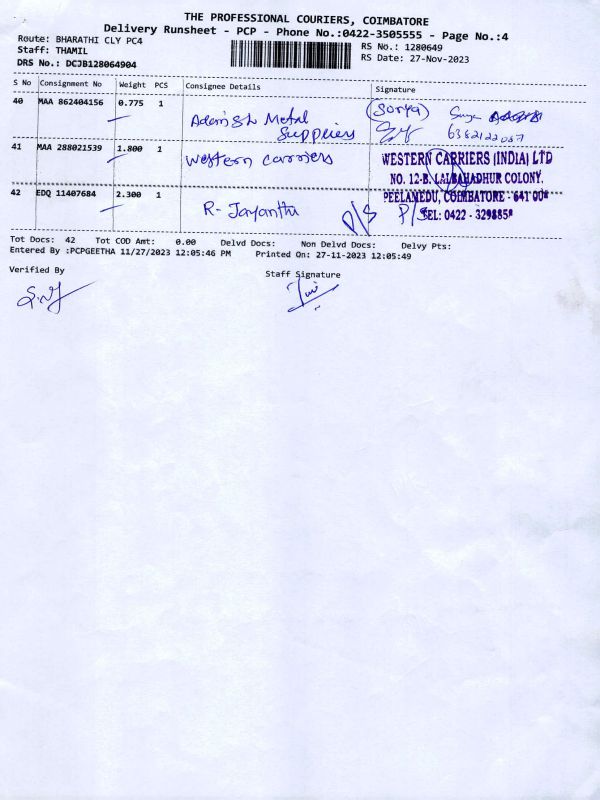 THE PROFESSIONAL COURIERS, COIMBATORE
Delivery Runsheet - PCP - Phone No.:0422-3505555 - Page No.:4
Route: BHARATHI CLY PC4
RS No.: 1280649
Staff: THAMIL
RS Date: 27-Nov-2023
DRS No.: DCJB128064904
S No Consignment No Weight PCS Consignee Details Signature
40 MAA 862404156 0.775 1 Metal (Sorya)
Suppliers
41 MAA 288021539 1.800 1 Western carriers
WESTERN CARRIERS (INDIA) LTD
NO. 12-B. LALBAHADHUR COLONY.
42 EDQ 11407684 2.300 1 R- Jayanthi P/S P/S
PEELAMEDU, COIMBATORE - 641 004
TEL: 0422 -
Tot Docs: 42 Tot COD Amt: 0.00 Delvd Docs: Non Delvd Docs: Delvy Pts:
Entered By :PCPGEETHA 11/27/2023 12:05:46 PM Printed On: 27-11-2023 12:05:49
Verified By
Staff Signature